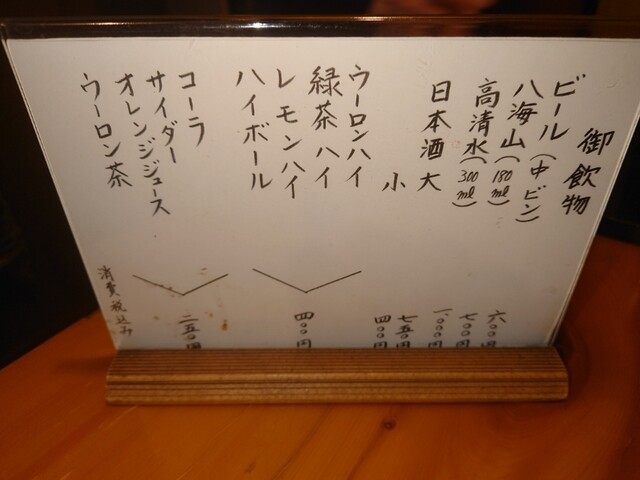 御飲物
ビール(中ビン) 六〇〇円
八海山(180ml) 七〇〇円
高清水(300ml) 一、〇〇〇円
日本酒 大 七五〇円
小 四〇〇円
ウーロンハイ
緑茶ハイ
レモンハイ
ハイボール
四〇〇円
コーラ
サイダー
オレンジジュース
ウーロン茶
二五〇円
消費税込み